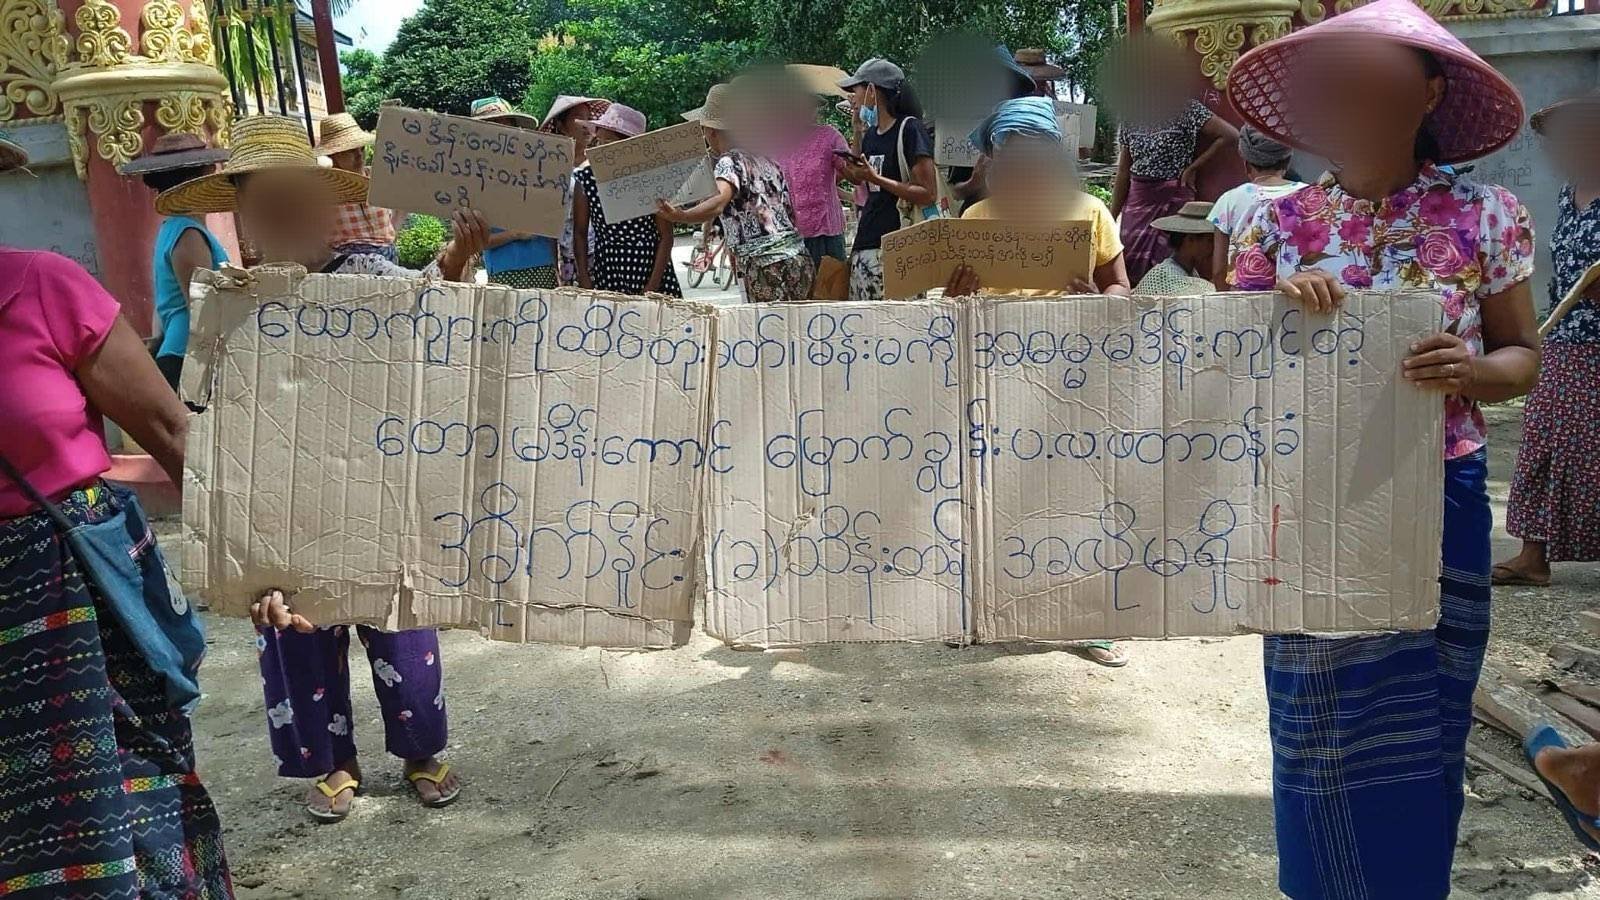 မဒိန်းကောင် ဒုံ့ကိုက်
နှိုင်း(ခေါ်)သိန်းတန် အလို
မရှိ
မြောက်ချွန်းပလဖ
မြောက်ချွန်းပလဖမဒိန်းကောင်ဒုံ့ကိုက်
နှိုင်း(ခ)သိန်းတန်အလိုမရှိ
ယောက်ျားကိုထိပ်တုံးခတ်၊ မိန်းမကို အဓမ္မမဒိန်းကျင့်တဲ့
တောမဒိန်းကောင် မြောက်ချွန်းပ.လ.ဖတာဝန်ခံ
ဒုံ့ကိုက်နှိုင်း (ခ)သိန်းတန် အလိုမရှိ!